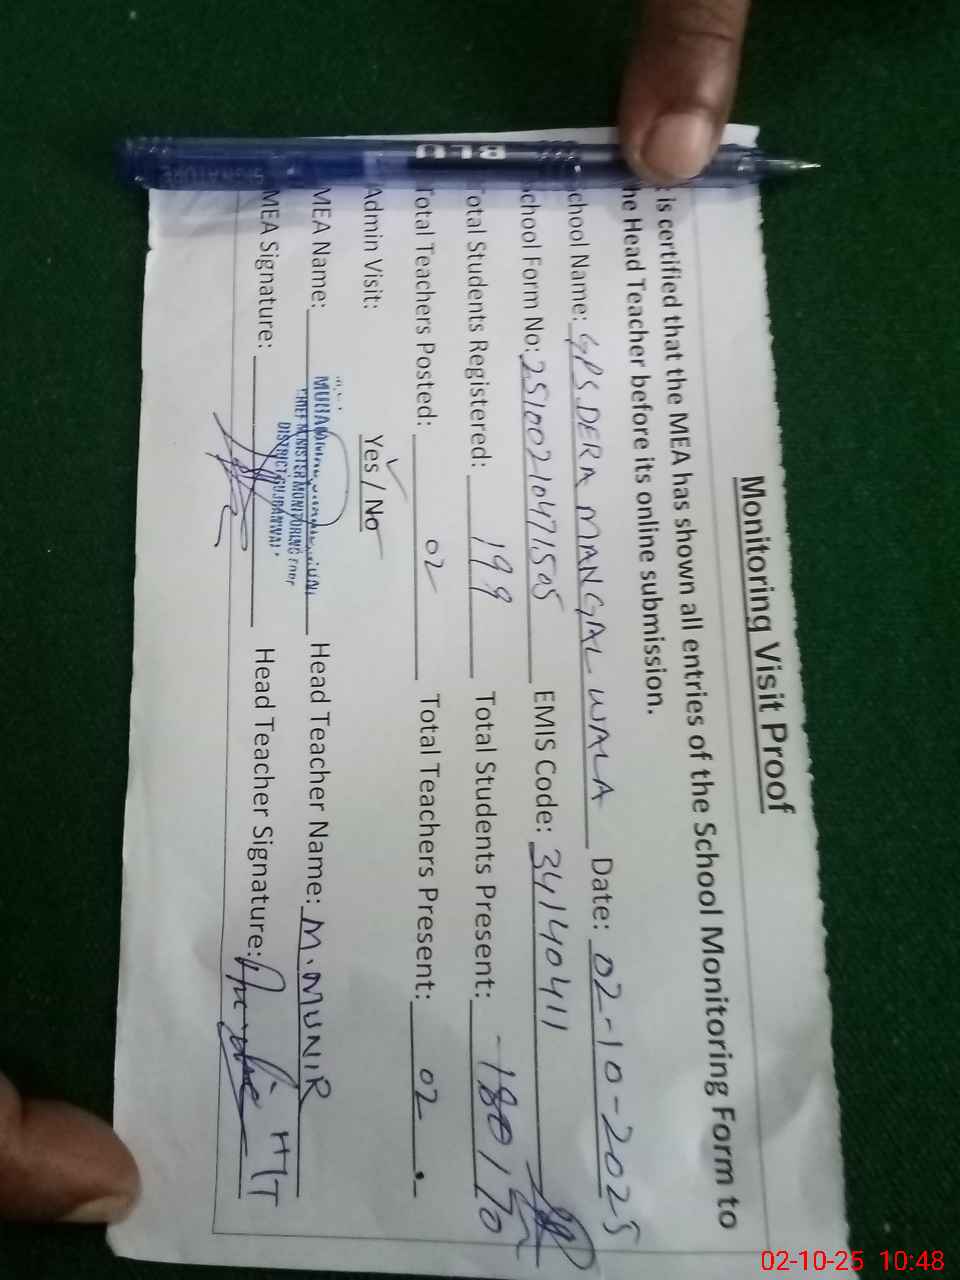 Monitoring Visit Proof
is certified that the MEA has shown all entries of the School Monitoring Form to
he Head Teacher before its online submission.
chool Name: GPS DERA MANGAL WALA Date: 02-10-2025
chool Form No: 25100210471505 EMIS Code: 34140411
otal Students Registered: 199 Total Students Present: 180/170
Total Teachers Posted: 02 Total Teachers Present: 02
Admin Visit: Yes / No
MEA Name: Head Teacher Name: M.MUNIR
CHIEF MINISTER MONITORING FORCE
DISTRICT GUJRANWALA
MEA Signature: Head Teacher Signature: HT
SIGNATURE
02-10-25 10:48